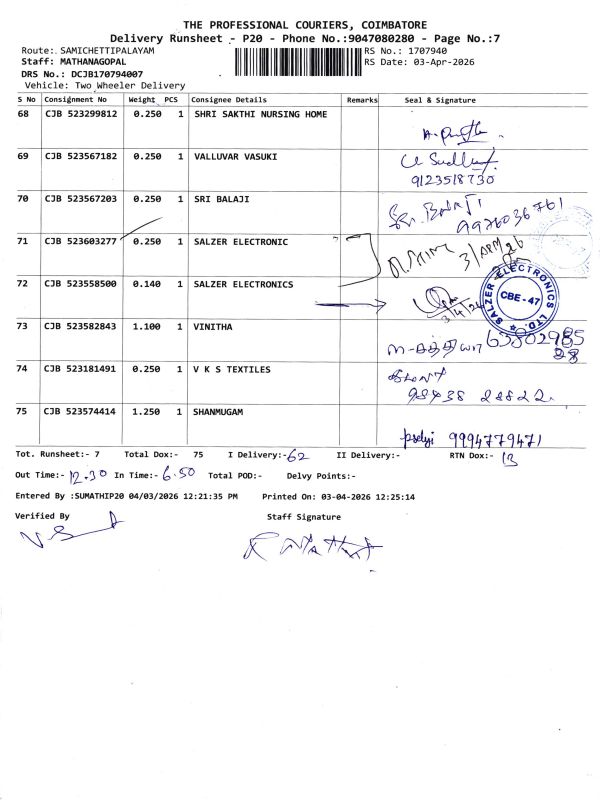 THE PROFESSIONAL COURIERS, COIMBATORE
Delivery Runsheet - P20 - Phone No.:9047080280 - Page No.:7
Route:- SAMICHETTIPALAYAM RS No.: 1707940
Staff: MATHANAGOPAL RS Date: 03-Apr-2026
DRS No.: DCJB170794007
Vehicle: Two Wheeler Delivery
S No Consignment No Weight PCS Consignee Details Remarks Seal & Signature
68 CJB 523299812 0.250 1 SHRI SAKTHI NURSING HOME
69 CJB 523567182 0.250 1 VALLUVAR VASUKI
9123518730
70 CJB 523567203 0.250 1 SRI BALAJI Sri. BALAJI
9976036761
71 CJB 523603277 0.250 1 SALZER ELECTRONIC 3/APR/26
72 CJB 523558500 0.140 1 SALZER ELECTRONICS 3/4/26
SALZER ELECTRONICS LTD. CBE-47
73 CJB 523582843 1.100 1 VINITHA
74 CJB 523181491 0.250 1 V K S TEXTILES
75 CJB 523574414 1.250 1 SHANMUGAM 9994779471
Tot. Runsheet:- 7 Total Dox:- 75 I Delivery:- 62 II Delivery:- RTN Dox:- 13
Out Time:- 12.30 In Time:- 6.50 Total POD:- Delvy Points:-
Entered By :SUMATHIP20 04/03/2026 12:21:35 PM Printed On: 03-04-2026 12:25:14
Verified By Staff Signature